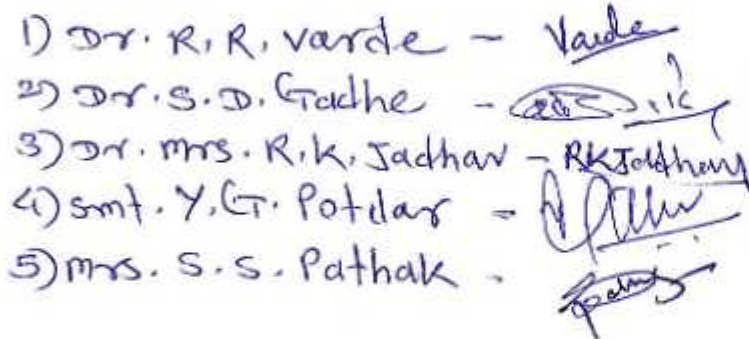 1) Dr. R. R. Varde - Varde
2) Dr. S. D. Gadhe -
3) Dr. Mrs. R. K. Jadhav - RKJadhav
4) Smt. Y. G. Potdar -
5) Mrs. S. S. Pathak -